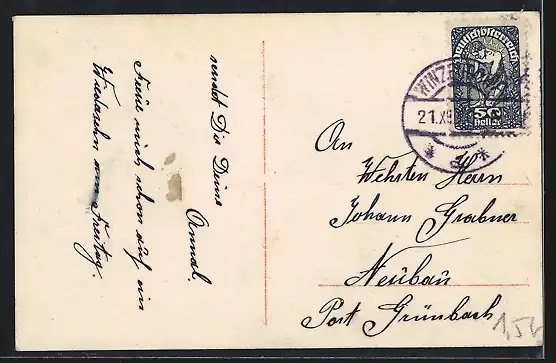 sendet Dir Deine
Annal.
Freue mich schon auf ein
Wiedersehn am Freitag.
Deutschösterreich
50
Heller
WINZ
21.XII
An
Wehrten Herrn
Johann Grabner
Neubau
Post Grünbach